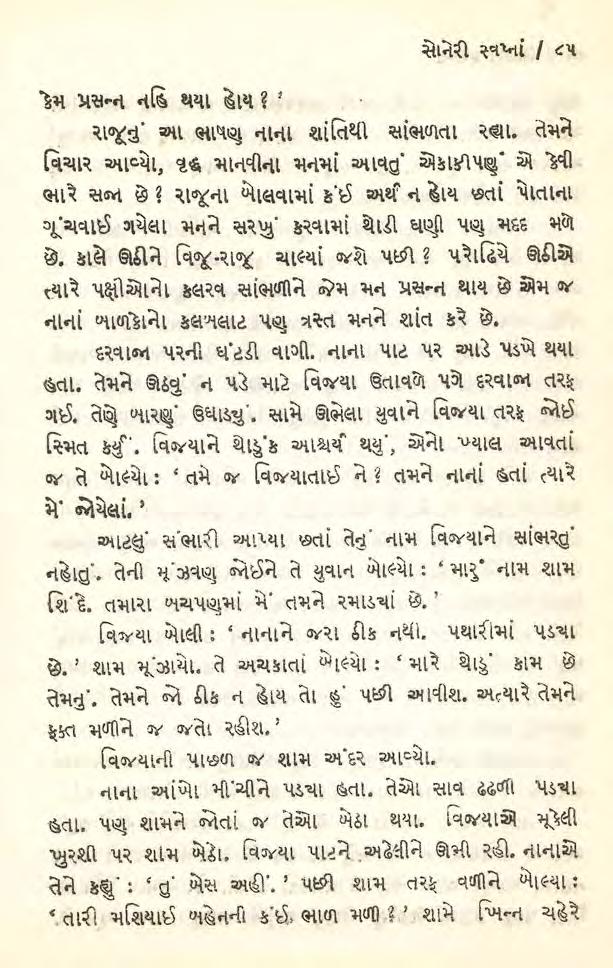 સોનેરી સ્વપ્નાં / ૮૫
કેમ પ્રસન્ન નહિ થયા હોય ? ’
રાજૂનું આ ભાષણ નાના શાંતિથી સાંભળતા રહ્યા. તેમને
વિચાર આવ્યો, વૃદ્ધ માનવીના મનમાં આવતું એકાકીપણું એ કેવી
ભારે સજા છે ? રાજૂના બોલવામાં કંઈ અર્થ ન હોય છતાં પોતાના
ગૂંચવાઈ ગયેલા મનને સરખું કરવામાં થોડી ઘણી પણ મદદ મળે
છે. કાલે ઊઠીને વિજૂ-રાજૂ ચાલ્યાં જશે પછી ? પરોઢિયે ઊઠીએ
ત્યારે પક્ષીઓનો કલરવ સાંભળીને જેમ મન પ્રસન્ન થાય છે એમ જ
નાનાં બાળકોનો કલબલાટ પણ ત્રસ્ત મનને શાંત કરે છે.
દરવાજા પરની ઘંટડી વાગી. નાના પાટ પર આડે પડખે થયા
હતા. તેમને ઊઠવું ન પડે માટે વિજયા ઉતાવળે પગે દરવાજા તરફ
ગઈ. તેણે બારણું ઉઘાડ્યું. સામે ઊભેલા યુવાને વિજયા તરફ જોઈ
સ્મિત કર્યું. વિજયાને થોડુંક આશ્ચર્ય થયું, એનો ખ્યાલ આવતાં
જ તે બોલ્યો : ‘ તમે જ વિજયાતાઈ ને ? તમને નાનાં હતાં ત્યારે
મેં જોયેલાં. ’
આટલું સંભારી આપ્યા છતાં તેનું નામ વિજયાને સાંભરતું
નહોતું. તેની મૂંઝવણ જોઈને તે યુવાન બોલ્યો : ‘ મારું નામ શામ
શિંદે. તમારા બચપણમાં મેં તમને રમાડ્યાં છે. ’
વિજયા બોલી : ‘ નાનાને જરા ઠીક નથી. પથારીમાં પડ્યા
છે. ’ શામ મૂંઝાયો. તે અચકાતાં બોલ્યો : ‘ મારે થોડું કામ છે
તેમનું. તેમને જો ઠીક ન હોય તો હું પછી આવીશ. અત્યારે તેમને
ફક્ત મળીને જ જતો રહીશ. ’
વિજયાની પાછળ જ શામ અંદર આવ્યો.
નાના આંખો મીંચીને પડ્યા હતા. તેઓ સાવ ઢઢળી પડ્યા
હતા. પણ શામને જોતાં જ તેઓ બેઠા થયા. વિજયાએ મૂકેલી
ખુરશી પર શામ બેઠો. વિજયા પાટને અઢેલીને ઊભી રહી. નાનાએ
તેને કહ્યું : ‘ તું બેસ અહીં. ’ પછી શામ તરફ વળીને બોલ્યા :
‘ તારી મશિયાઈ બહેનની કંઈ ભાળ મળી ? ’ શામે ખિન્ન ચહેરે